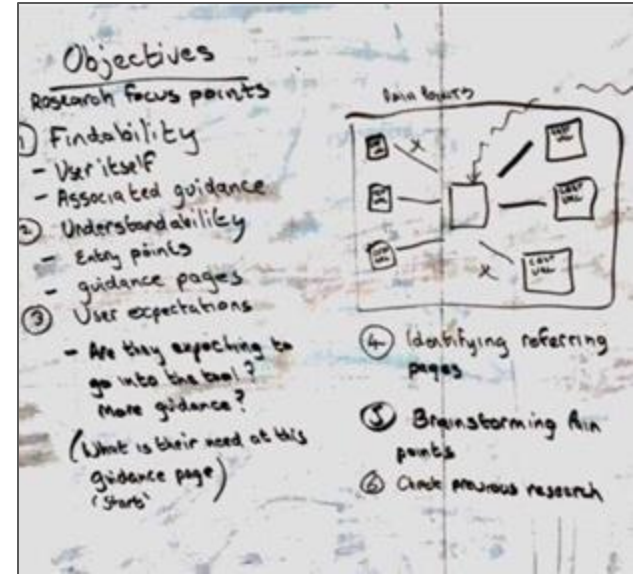 Objectives
Research focus points
1 Findability
- User itself
- Associated guidance
2 Understandability
- Entry points
- guidance pages
3 User expectations
- Are they expecting to
go into the tool?
More guidance?
(What is their need at this
guidance page)
'Start'
Pain Points
x
x
LAST
URL
4 Identifying referring
pages
5 Brainstorming Pain
points
6 Check previous research